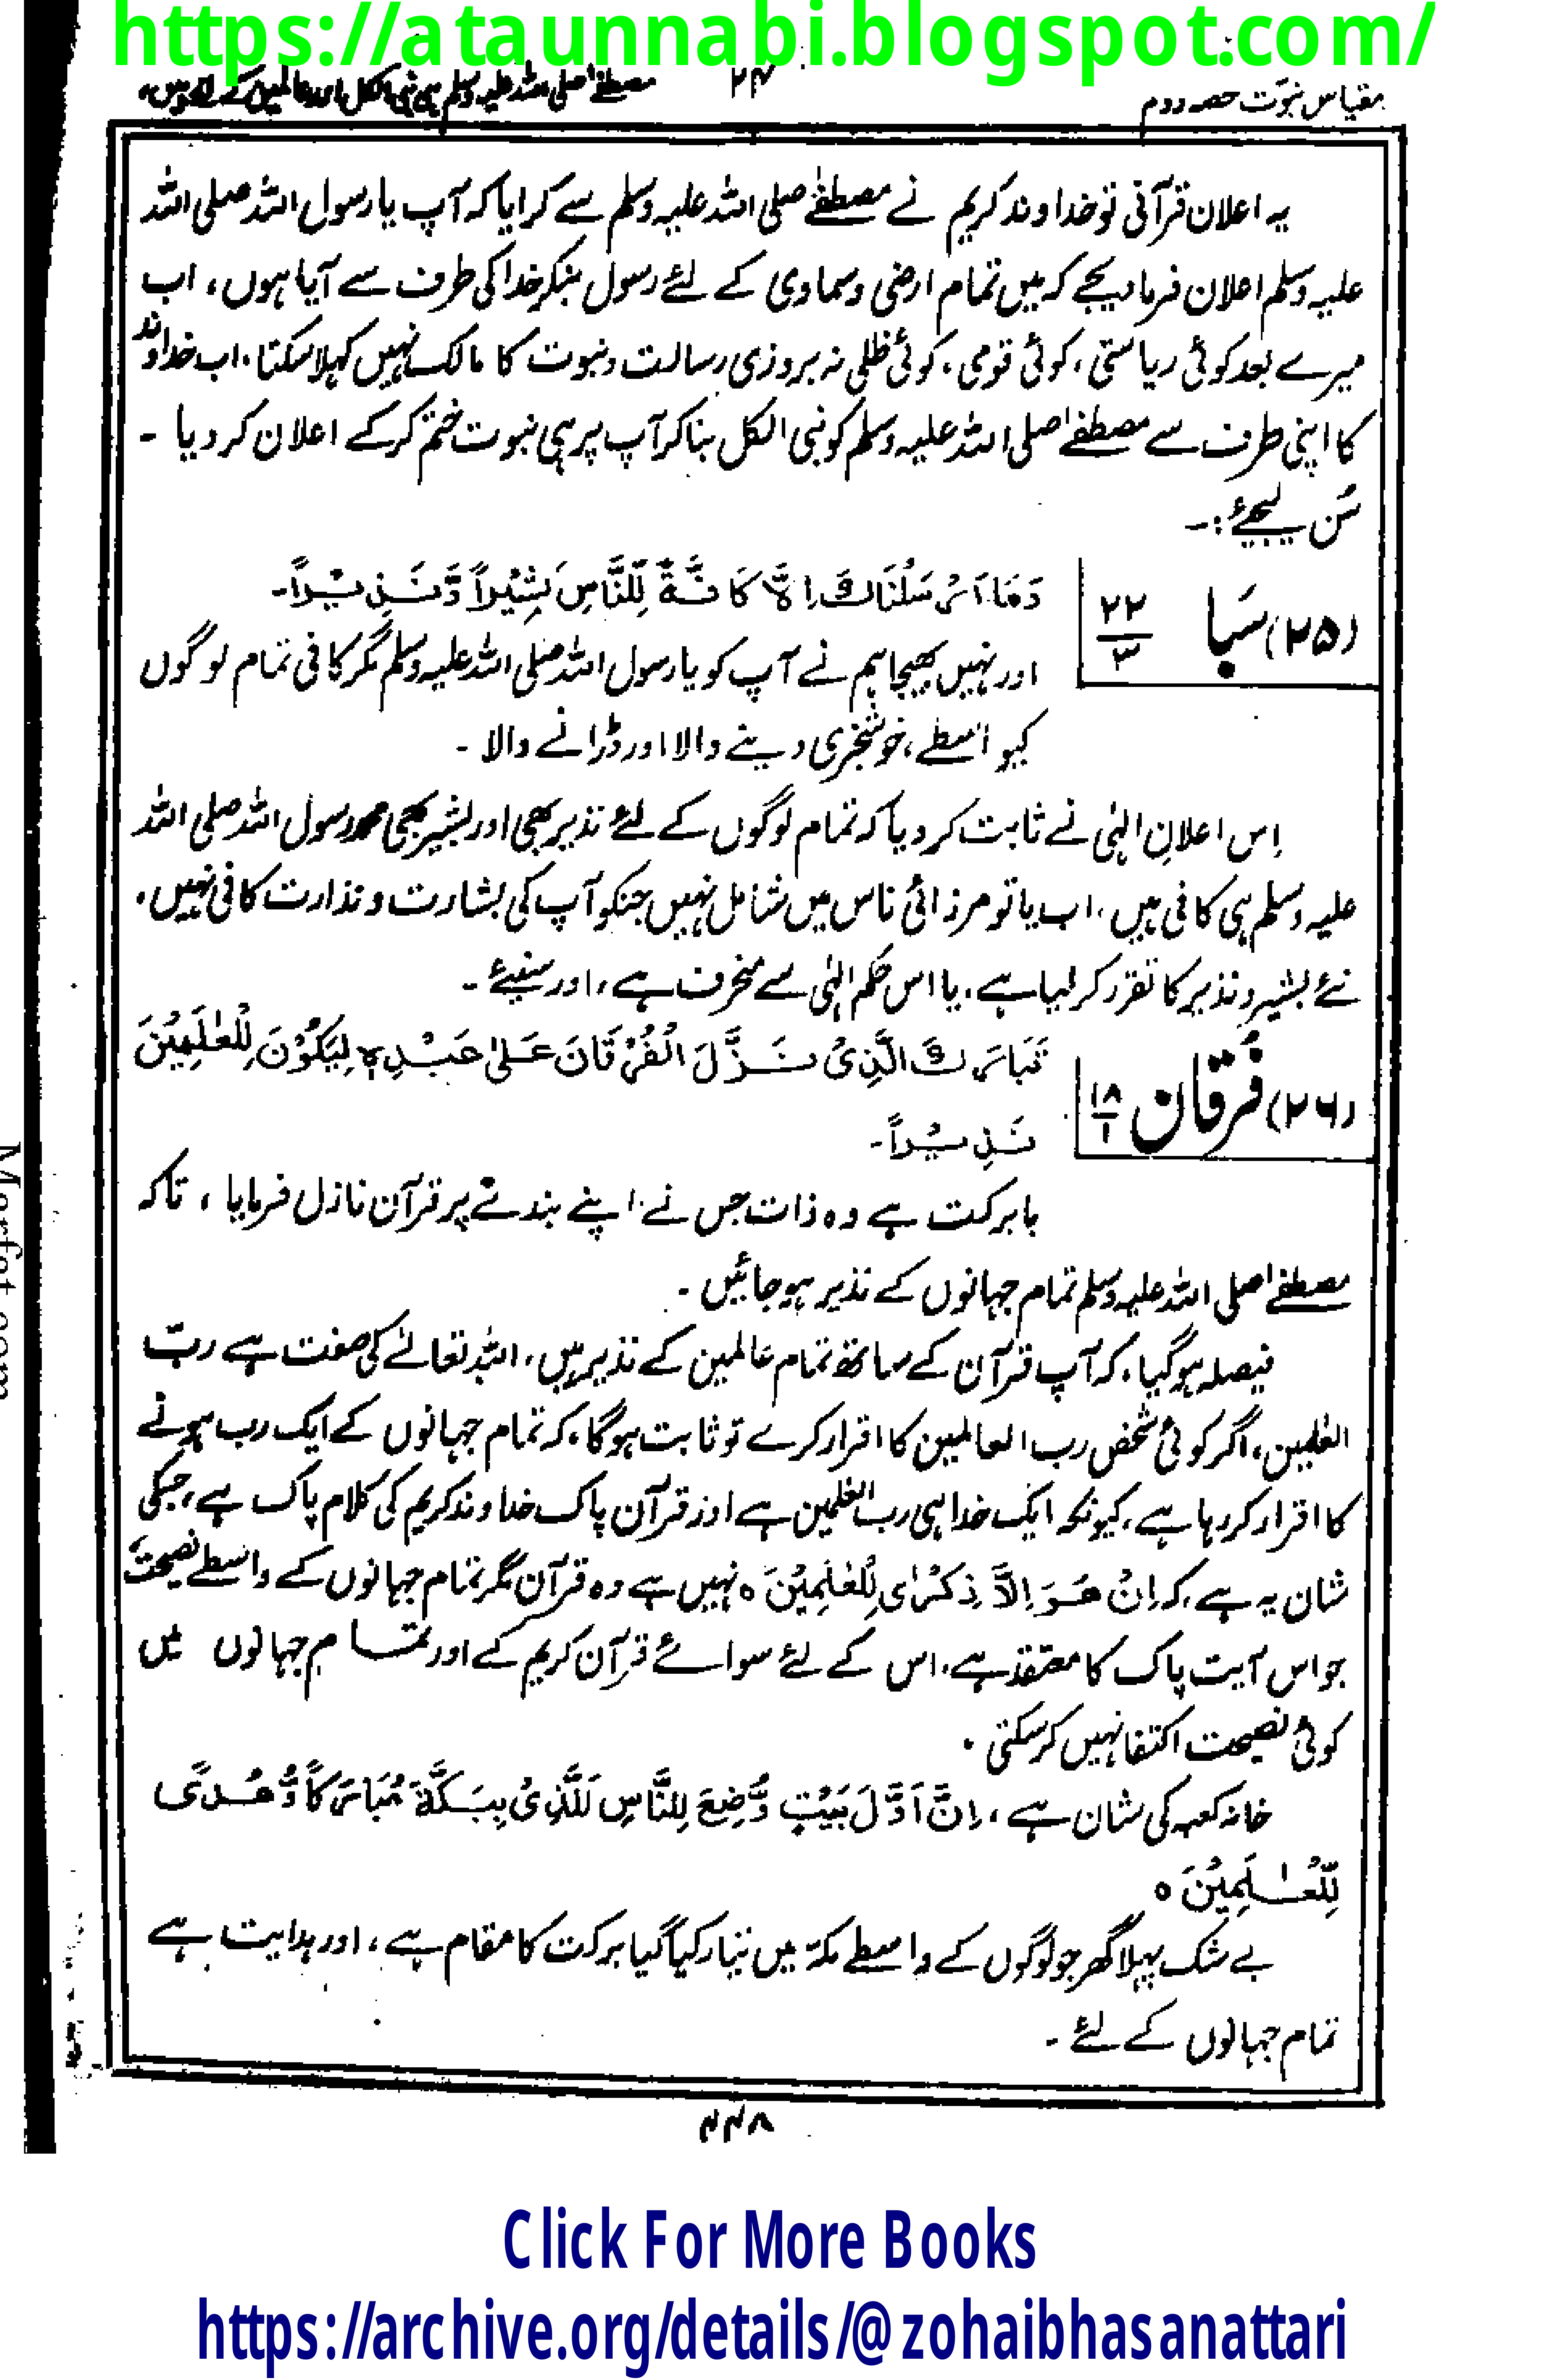 https://ataunnabi.blogspot.com/
مقیاس نبوّت حصہ دوم
۲۴
مصطفےٰ صلی اللہ علیہ وسلم ہی نبی الکل اور عالمین کے
یہ اعلان قرآنی تو خداوند کریم نے مصطفےٰ صلی اللہ علیہ وسلم سے کرایا کہ آپ یا رسول اللہ صلی اللہ
علیہ وسلم اعلان فرما دیجے کہ میں تمام ارضی وسماوی کے لئے رسول بنکر خدا کی طرف سے آیا ہوں، اب
میرے بعد کوئی ریاستی، کوئی قومی، کوئی ظلی نہ بروزی رسالت ونبوت کا مالک نہیں کہلا سکتا، اب خداوند
کا اپنی طرف سے مصطفےٰ صلی اللہ علیہ وسلم کو نبی الکل بنا کر آپ پر ہی نبوت ختم کرکے اعلان کر دیا ۔
سُن لیجئے :۔
(۲۵) سَبا ۲۲/۳
وَمَا اَرْسَلْنَاكَ اِلَّا كَافَّةً لِّلنَّاسِ بَشِيْراً وَّنَذِيْراً۔
اور نہیں بھیجا ہم نے آپ کو یا رسول اللہ صلی اللہ علیہ وسلم مگر کافی تمام لوگوں
کیواسطے، خوشخبری دینے والا اور ڈرانے والا ۔
اِس اعلانِ الہٰی نے ثابت کر دیا کہ تمام لوگوں کے لئے نذیر بھی اور بشیر بھی محمد رسول اللہ صلی اللہ
علیہ وسلم ہی کافی ہیں، اب یا تو مرزائی ناس میں شامل نہیں جنکو آپ کی بشارت و نذارت کافی نہیں،
نئے بشیر و نذیر کا تقرر کر لیا ہے، یا اس حکم الہٰی سے منحرف ہے، اور سنیئے ۔
(۲۶) فُرقان ۱۸/۱
تَبَارَكَ الَّذِىْ نَزَّلَ الْفُرْقَانَ عَلىٰ عَبْدِهٖ لِيَكُوْنَ لِلْعٰلَمِيْنَ
نَذِيْراً۔
بابرکت ہے وہ ذات جس نے اپنے بندے پر قرآن نازل فرمایا ، تاکہ
مصطفےٰ صلی اللہ علیہ وسلم تمام جہانوں کے نذیر ہو جائیں ۔
فیصلہ ہو گیا، کہ آپ قرآن کے ساتھ تمام عالمین کے نذیر ہیں، اللہ تعالےٰ کی صفت ہے ربّ
العٰلمین، اگر کوئی شخص رب العالمین کا اقرار کرے تو ثابت ہوگا، کہ تمام جہانوں کے ایک رب ہونے
کا اقرار کر رہا ہے، کیونکہ ایک خدا ہی رب العٰلمین ہے اور قرآن پاک خداوند کریم کی کلام پاک ہے، جسکی
شان یہ ہے، کہ اِنْ هُوَ اِلَّا ذِكْرٰى لِلْعٰلَمِيْنَ ہ نہیں ہے وہ قرآن مگر تمام جہانوں کے واسطے نصیحت
جو اس آیت پاک کا معتقد ہے، اس کے لئے سوائے قرآن کریم کے اور تمام جہانوں میں
کوئی نصیحت اکتفا نہیں کر سکتی ۔
خانہ کعبہ کی شان ہے ، اِنَّ اَوَّلَ بَيْتٍ وُّضِعَ لِلنَّاسِ لَلَّذِىْ بِبَكَّةَ مُبَارَكًا وَّهُدًى
لِّلْعٰلَمِيْنَ ہ
بے شک پہلا گھر جو لوگوں کے واسطے مکہّ میں تیار کیا گیا برکت کا مقام ہے ، اور ہدایت ہے
تمام جہانوں کے لئے ۔
۴۴۸
Marfat.com
Click For More Books
https://archive.org/details/@zohaibhasanattari